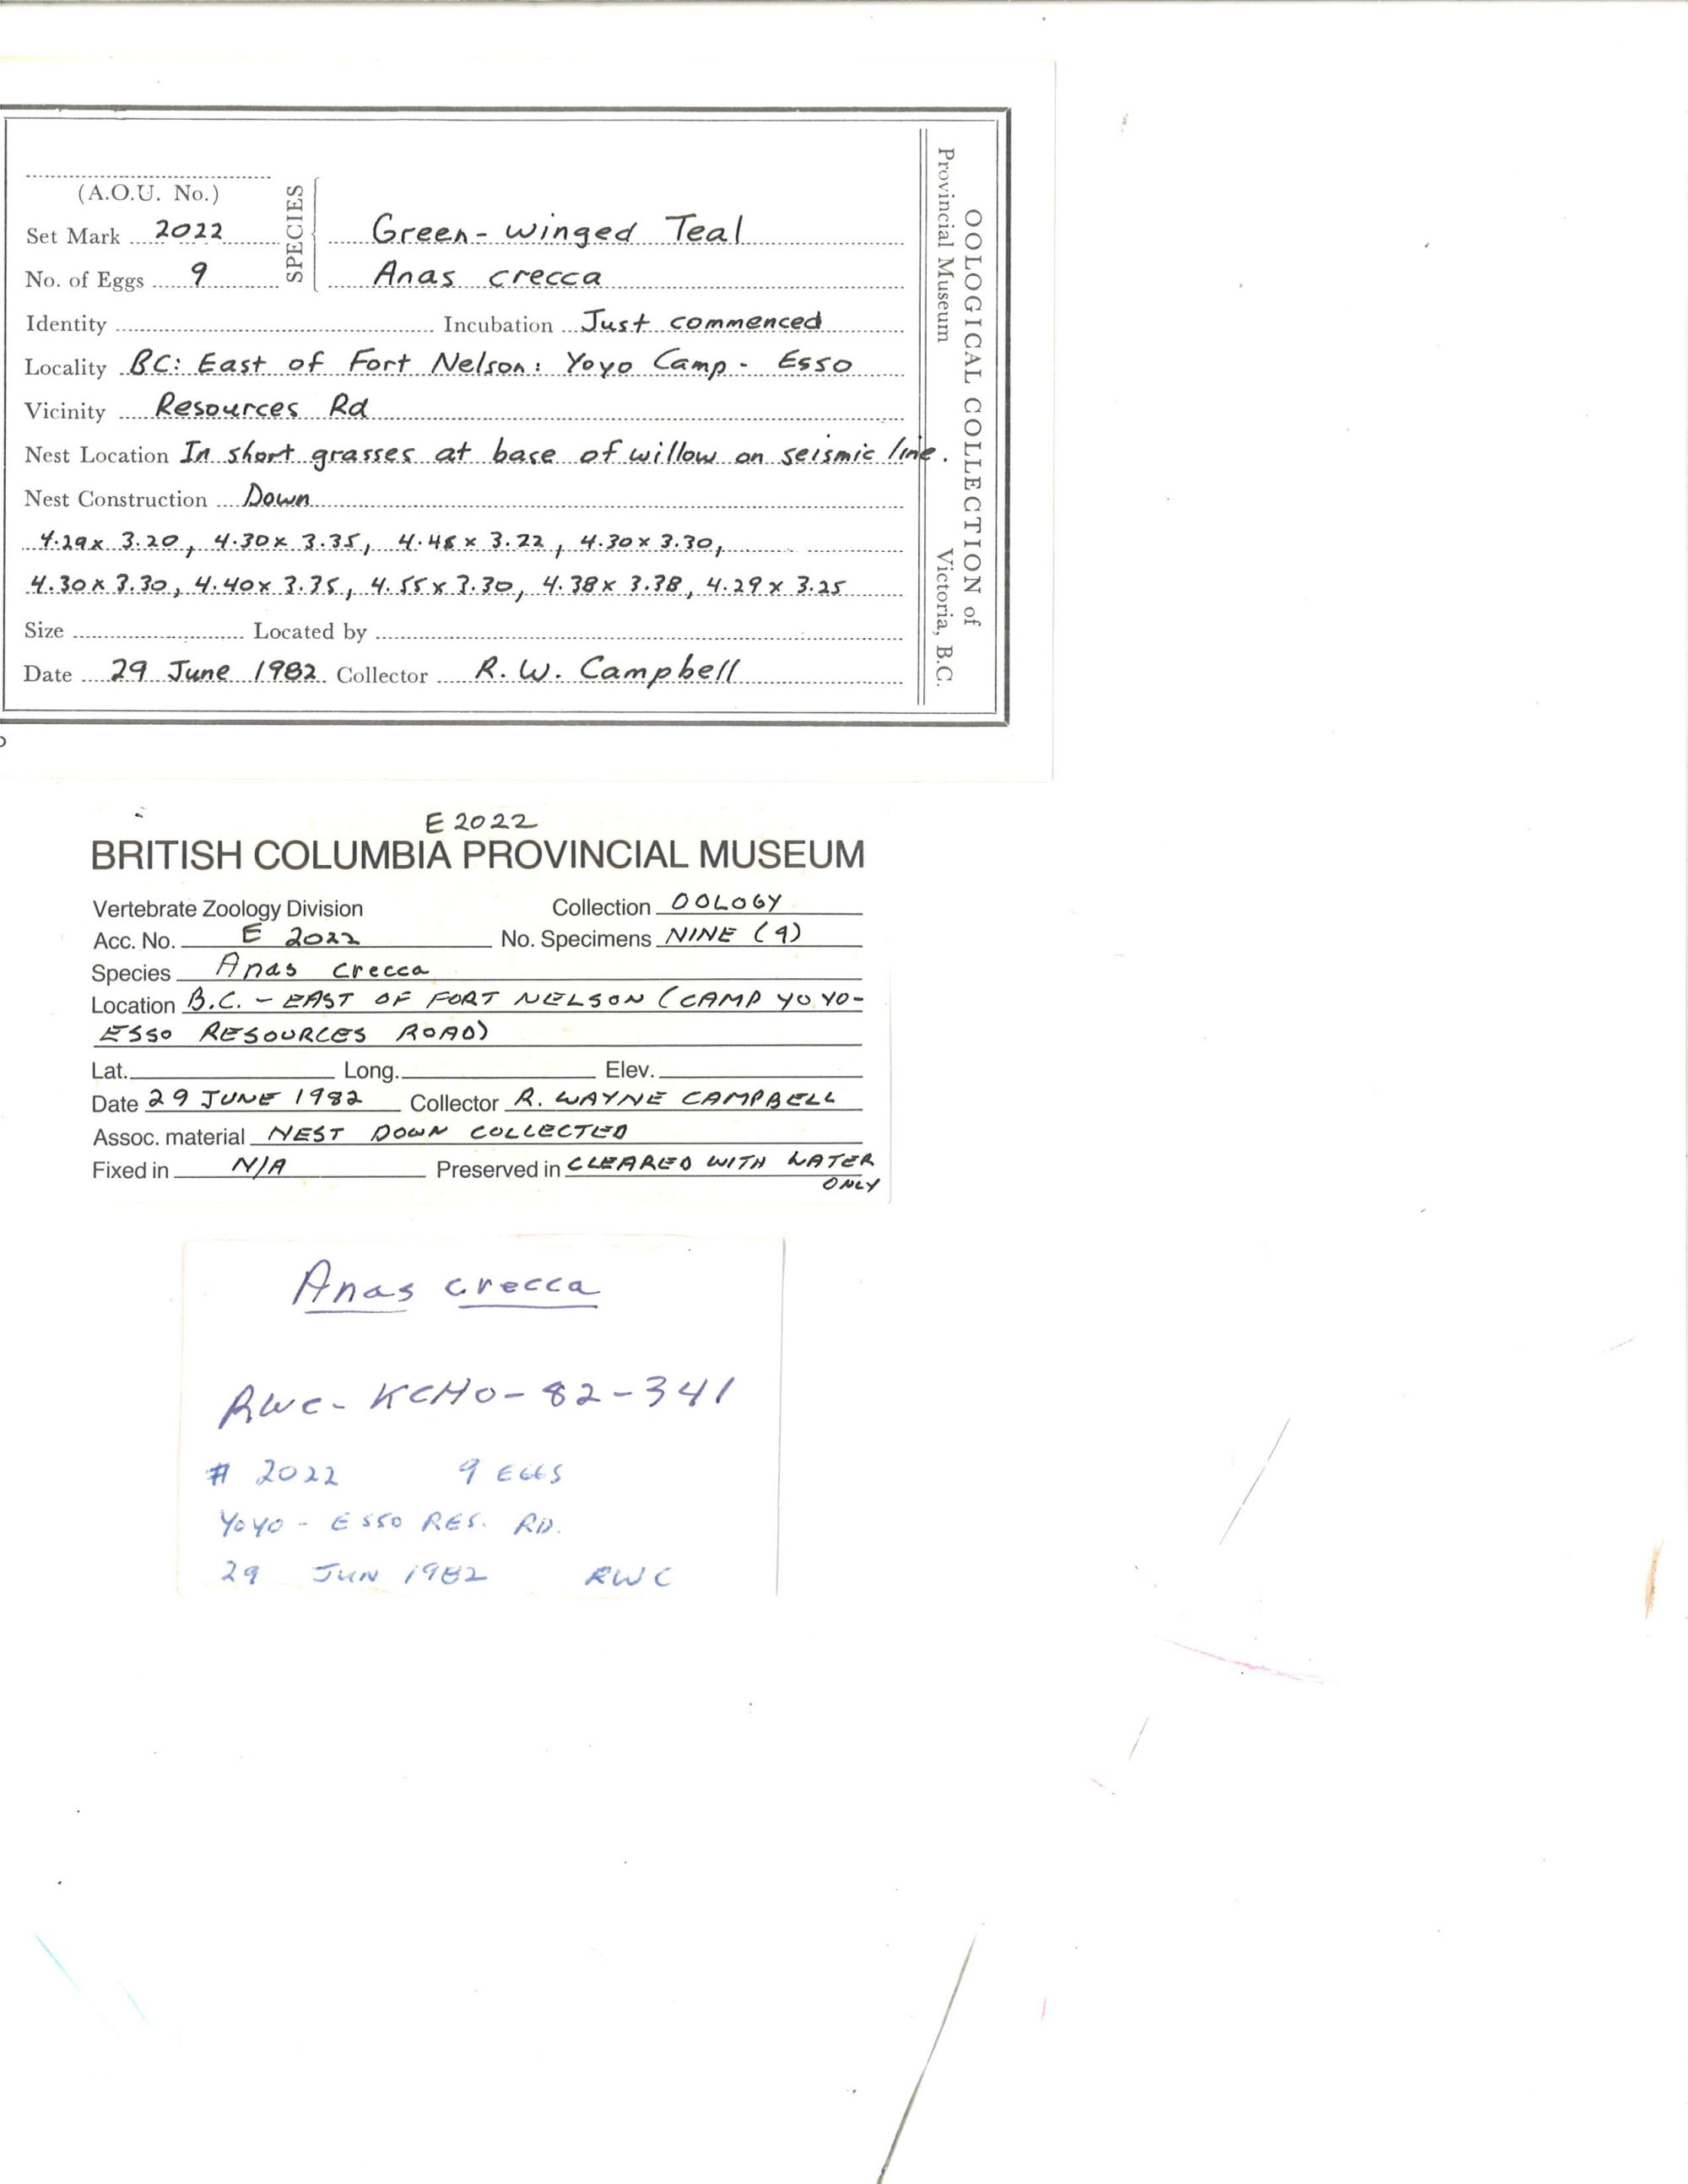 (A.O.U. No.)
SPECIES
Set Mark 2022 Green-winged Teal
No. of Eggs 9 Anas crecca
Identity Incubation Just commenced
Locality BC: East of Fort Nelson: Yoyo Camp - Esso
Vicinity Resources Rd
Nest Location In short grasses at base of willow on seismic line.
Nest Construction Down
4.29x 3.20, 4.30x 3.35, 4.48x 3.22, 4.30x3.30,
4.30x3.30, 4.40x 3.35, 4.55x3.30, 4.38x 3.38, 4.29 x 3.25
Size Located by
Date 29 June 1982 Collector R. W. Campbell
OOLOGICAL COLLECTION of
Provincial Museum Victoria, B.C.
E 2022
BRITISH COLUMBIA PROVINCIAL MUSEUM
Vertebrate Zoology Division Collection OOLOGY
Acc. No. E 2022 No. Specimens NINE (9)
Species Anas crecca
Location B.C. - EAST OF FORT NELSON (CAMP YO YO-
ESSO RESOURCES ROAD)
Lat. Long. Elev.
Date 29 JUNE 1982 Collector R. WAYNE CAMPBELL
Assoc. material NEST DOWN COLLECTED
Fixed in N/A Preserved in CLEARED WITH WATER
ONLY
Anas crecca
RWC- KCHO-82-341
# 2022 9 EGGS
YOYO - ESSO RES. RD.
29 JUN 1982 RWC